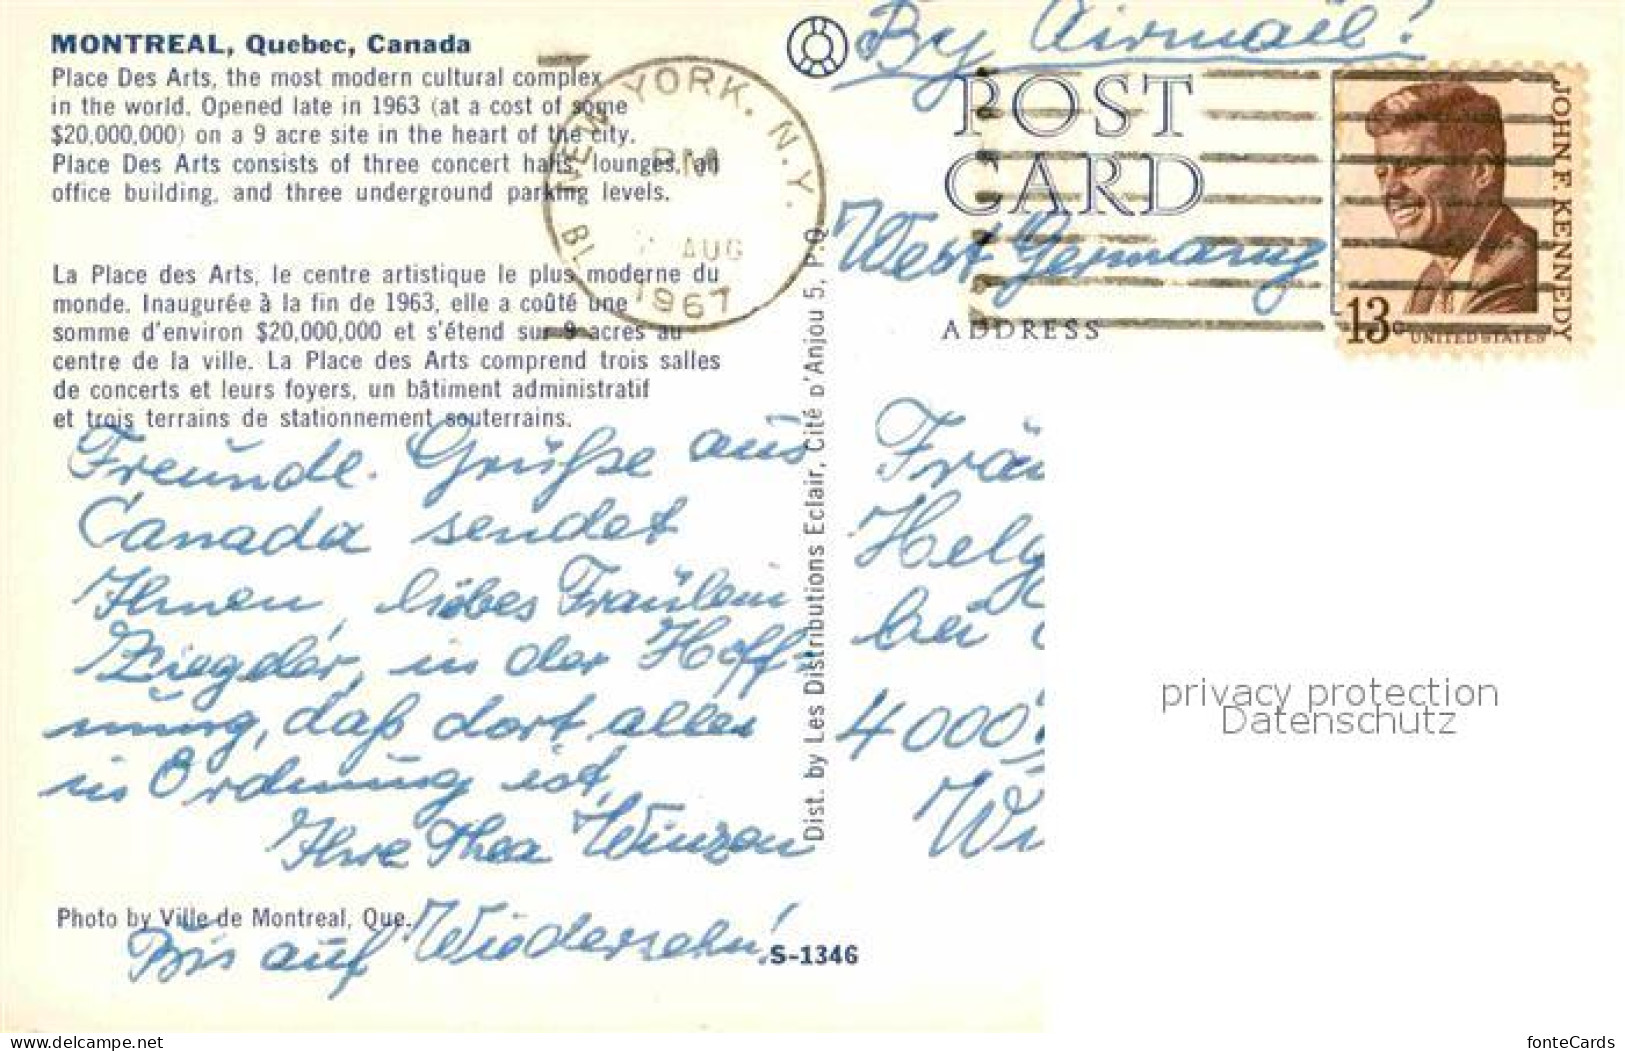 MONTREAL, Quebec, Canada
Place Des Arts, the most modern cultural complex
in the world. Opened late in 1963 (at a cost of some
$20,000,000) on a 9 acre site in the heart of the city.
Place Des Arts consists of three concert halls, lounges, an
office building, and three underground parking levels.
La Place des Arts, le centre artistique le plus moderne du
monde. Inaugurée à la fin de 1963, elle a coûté une
somme d'environ $20,000,000 et s'étend sur 9 acres au
centre de la ville. La Place des Arts comprend trois salles
de concerts et leurs foyers, un bâtiment administratif
et trois terrains de stationnement souterrains.
Freunde. Grüße aus
Canada sendet
Ihnen, liebes Fräulein
in der Hoff-
nung, daß dort alles
in Ordnung ist,
Ihre Thea Winzen
Photo by Ville de Montreal, Que.
Bis auf Wiedersehn!
S-1346
Dist. by Les Distributions Eclair, Cité d'Anjou 5, P.Q.
NEW YORK, N.Y.
PM
AUG
1967
By Airmail!
POST
CARD
West Germany
ADDRESS
JOHN F. KENNEDY
13c UNITED STATES
Fräu
Helg
bei
4000
Wi
privacy protection
Datenschutz
www.delcampe.net
fonteCards